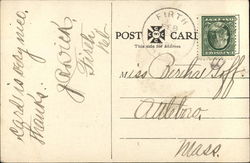 FIRTH
FEB
POST CARD
This side for Address
Card is very nice.
Thanks.
Firth
Neb
Miss Bertha
Attleboro,
Mass.